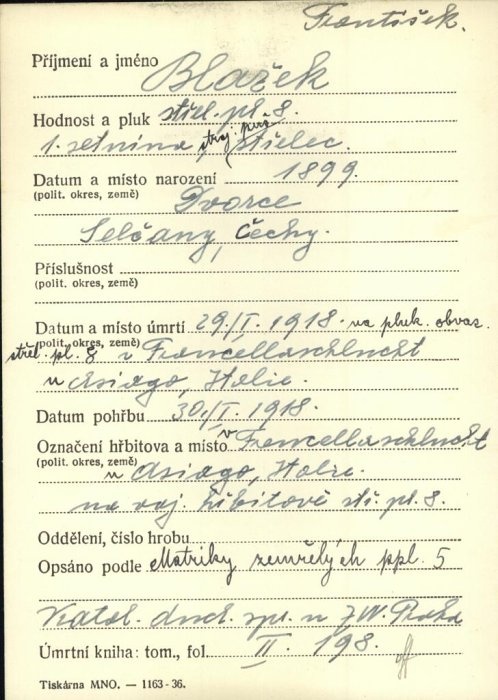 František.
Příjmení a jméno Blažek
Hodnost a pluk střel. pl. 8.
1. setnina stroj. pěš. střelec.
Datum a místo narození 1899.
(polit. okres, země) Dvorce
Selčany, Čechy.
Příslušnost
(polit. okres, země)
Datum a místo úmrtí 29./I. 1918. na pluk. obvaz.
(polit. okres, země)
střel. pl. 8 v Francellaschlucht
u Asiago, Italie.
Datum pohřbu 30./I. 1918.
Označení hřbitova a místo v Francellaschlucht
(polit. okres, země) u Asiago, Italie.
na voj. hřbitově stř. pl. 8.
Oddělení, číslo hrobu
Opsáno podle Matriky zemřelých ppl. 5
Katol. duch. spr. u ZVV. Praha
Úmrtní kniha: tom., fol. II. 198.
Tiskárna MNO. — 1163-36.